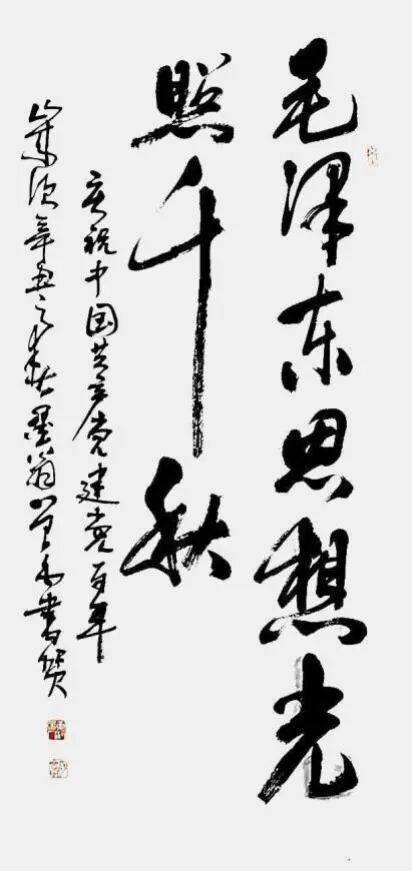 毛泽东思想光
照千秋
庆祝中国共产党建党百年
岁次辛丑之秋墨翁 书贺